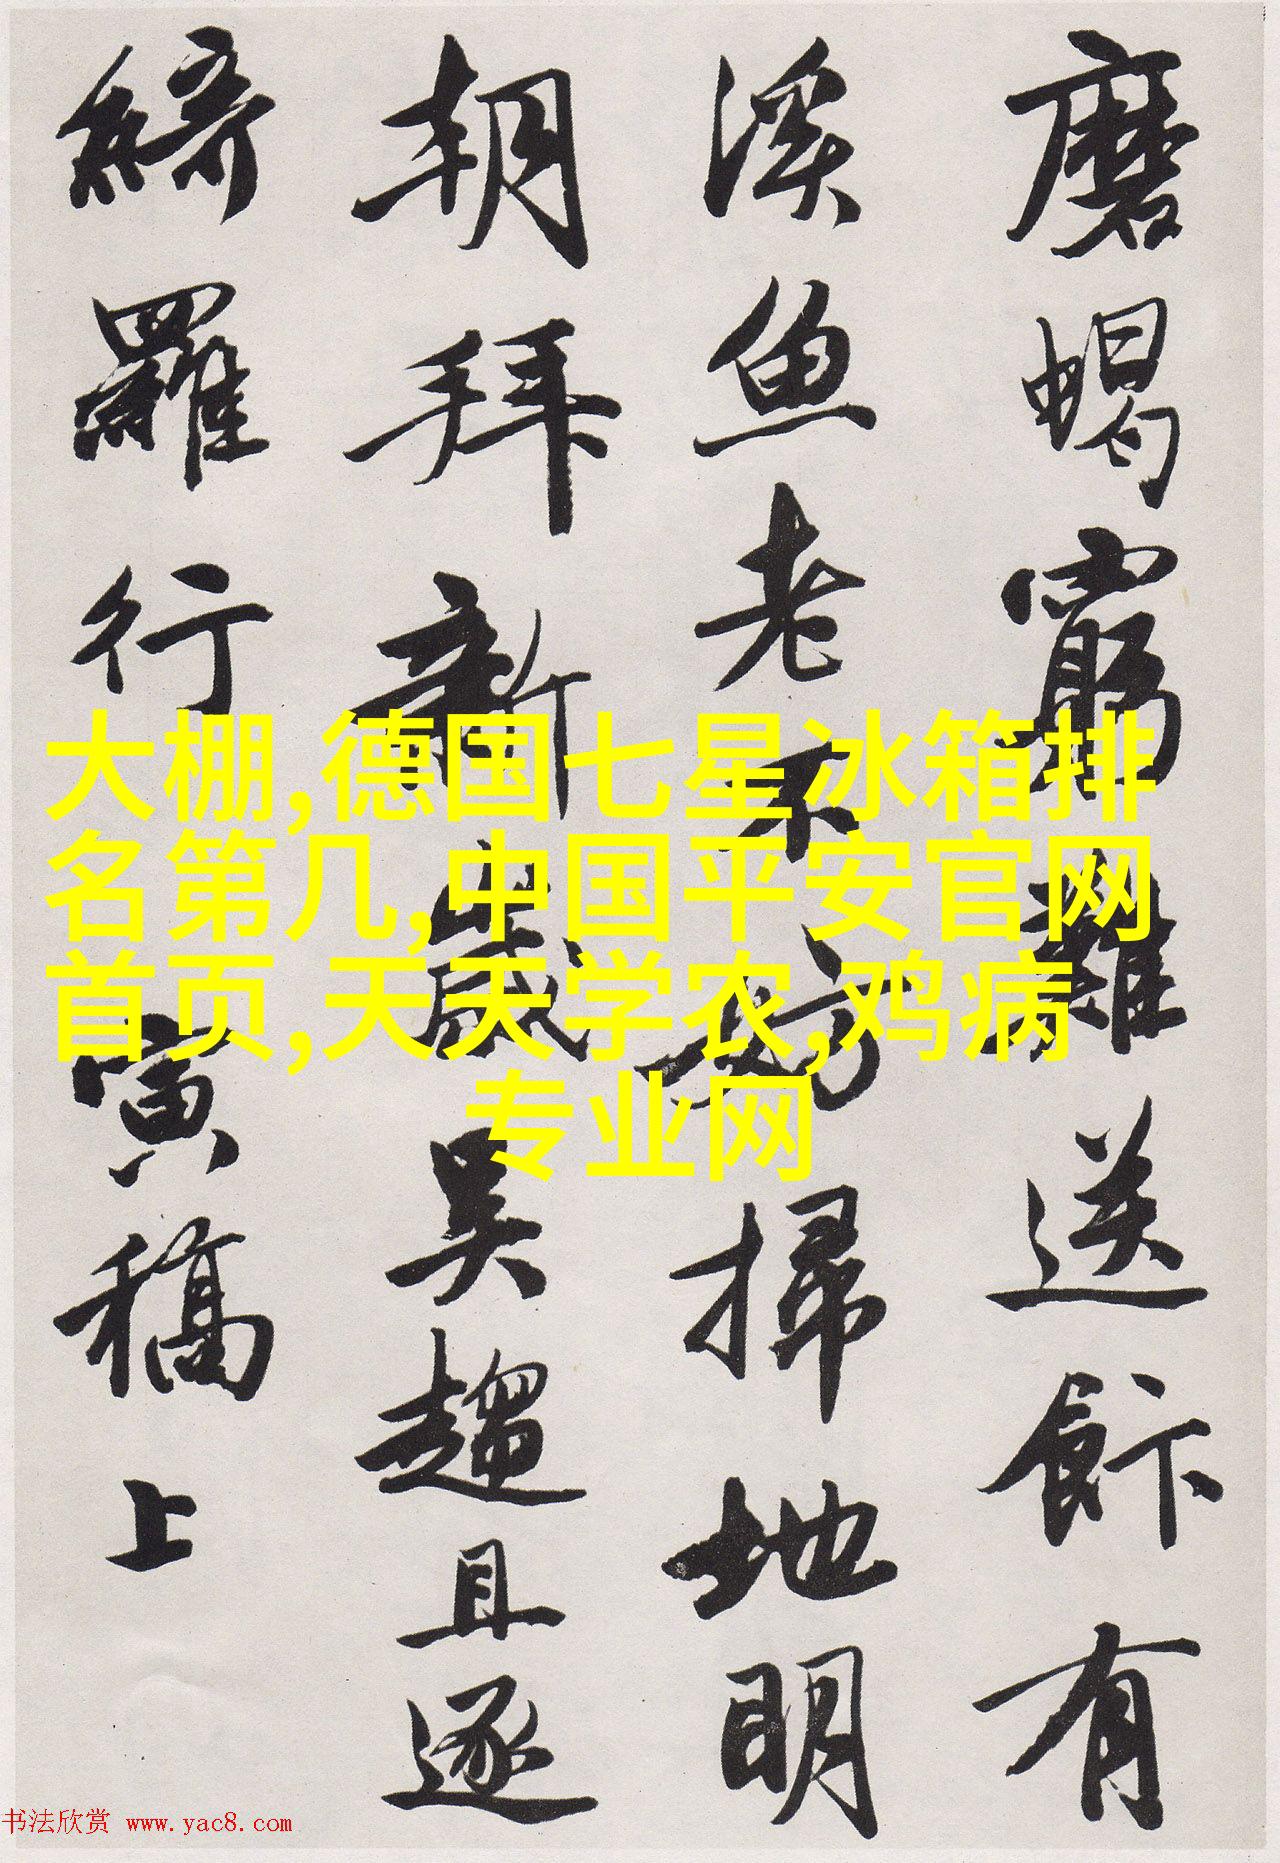 磨蝎窮難送飰有
溪鱼老不妨掃地明
朝拜新歲吴趨且逐
綺羅行
寅稿上
大棚,德国七星冰箱排
名第几,中国平安官网
首页,天天学农,鸡病
专业网
书法欣赏 www.yac8.com